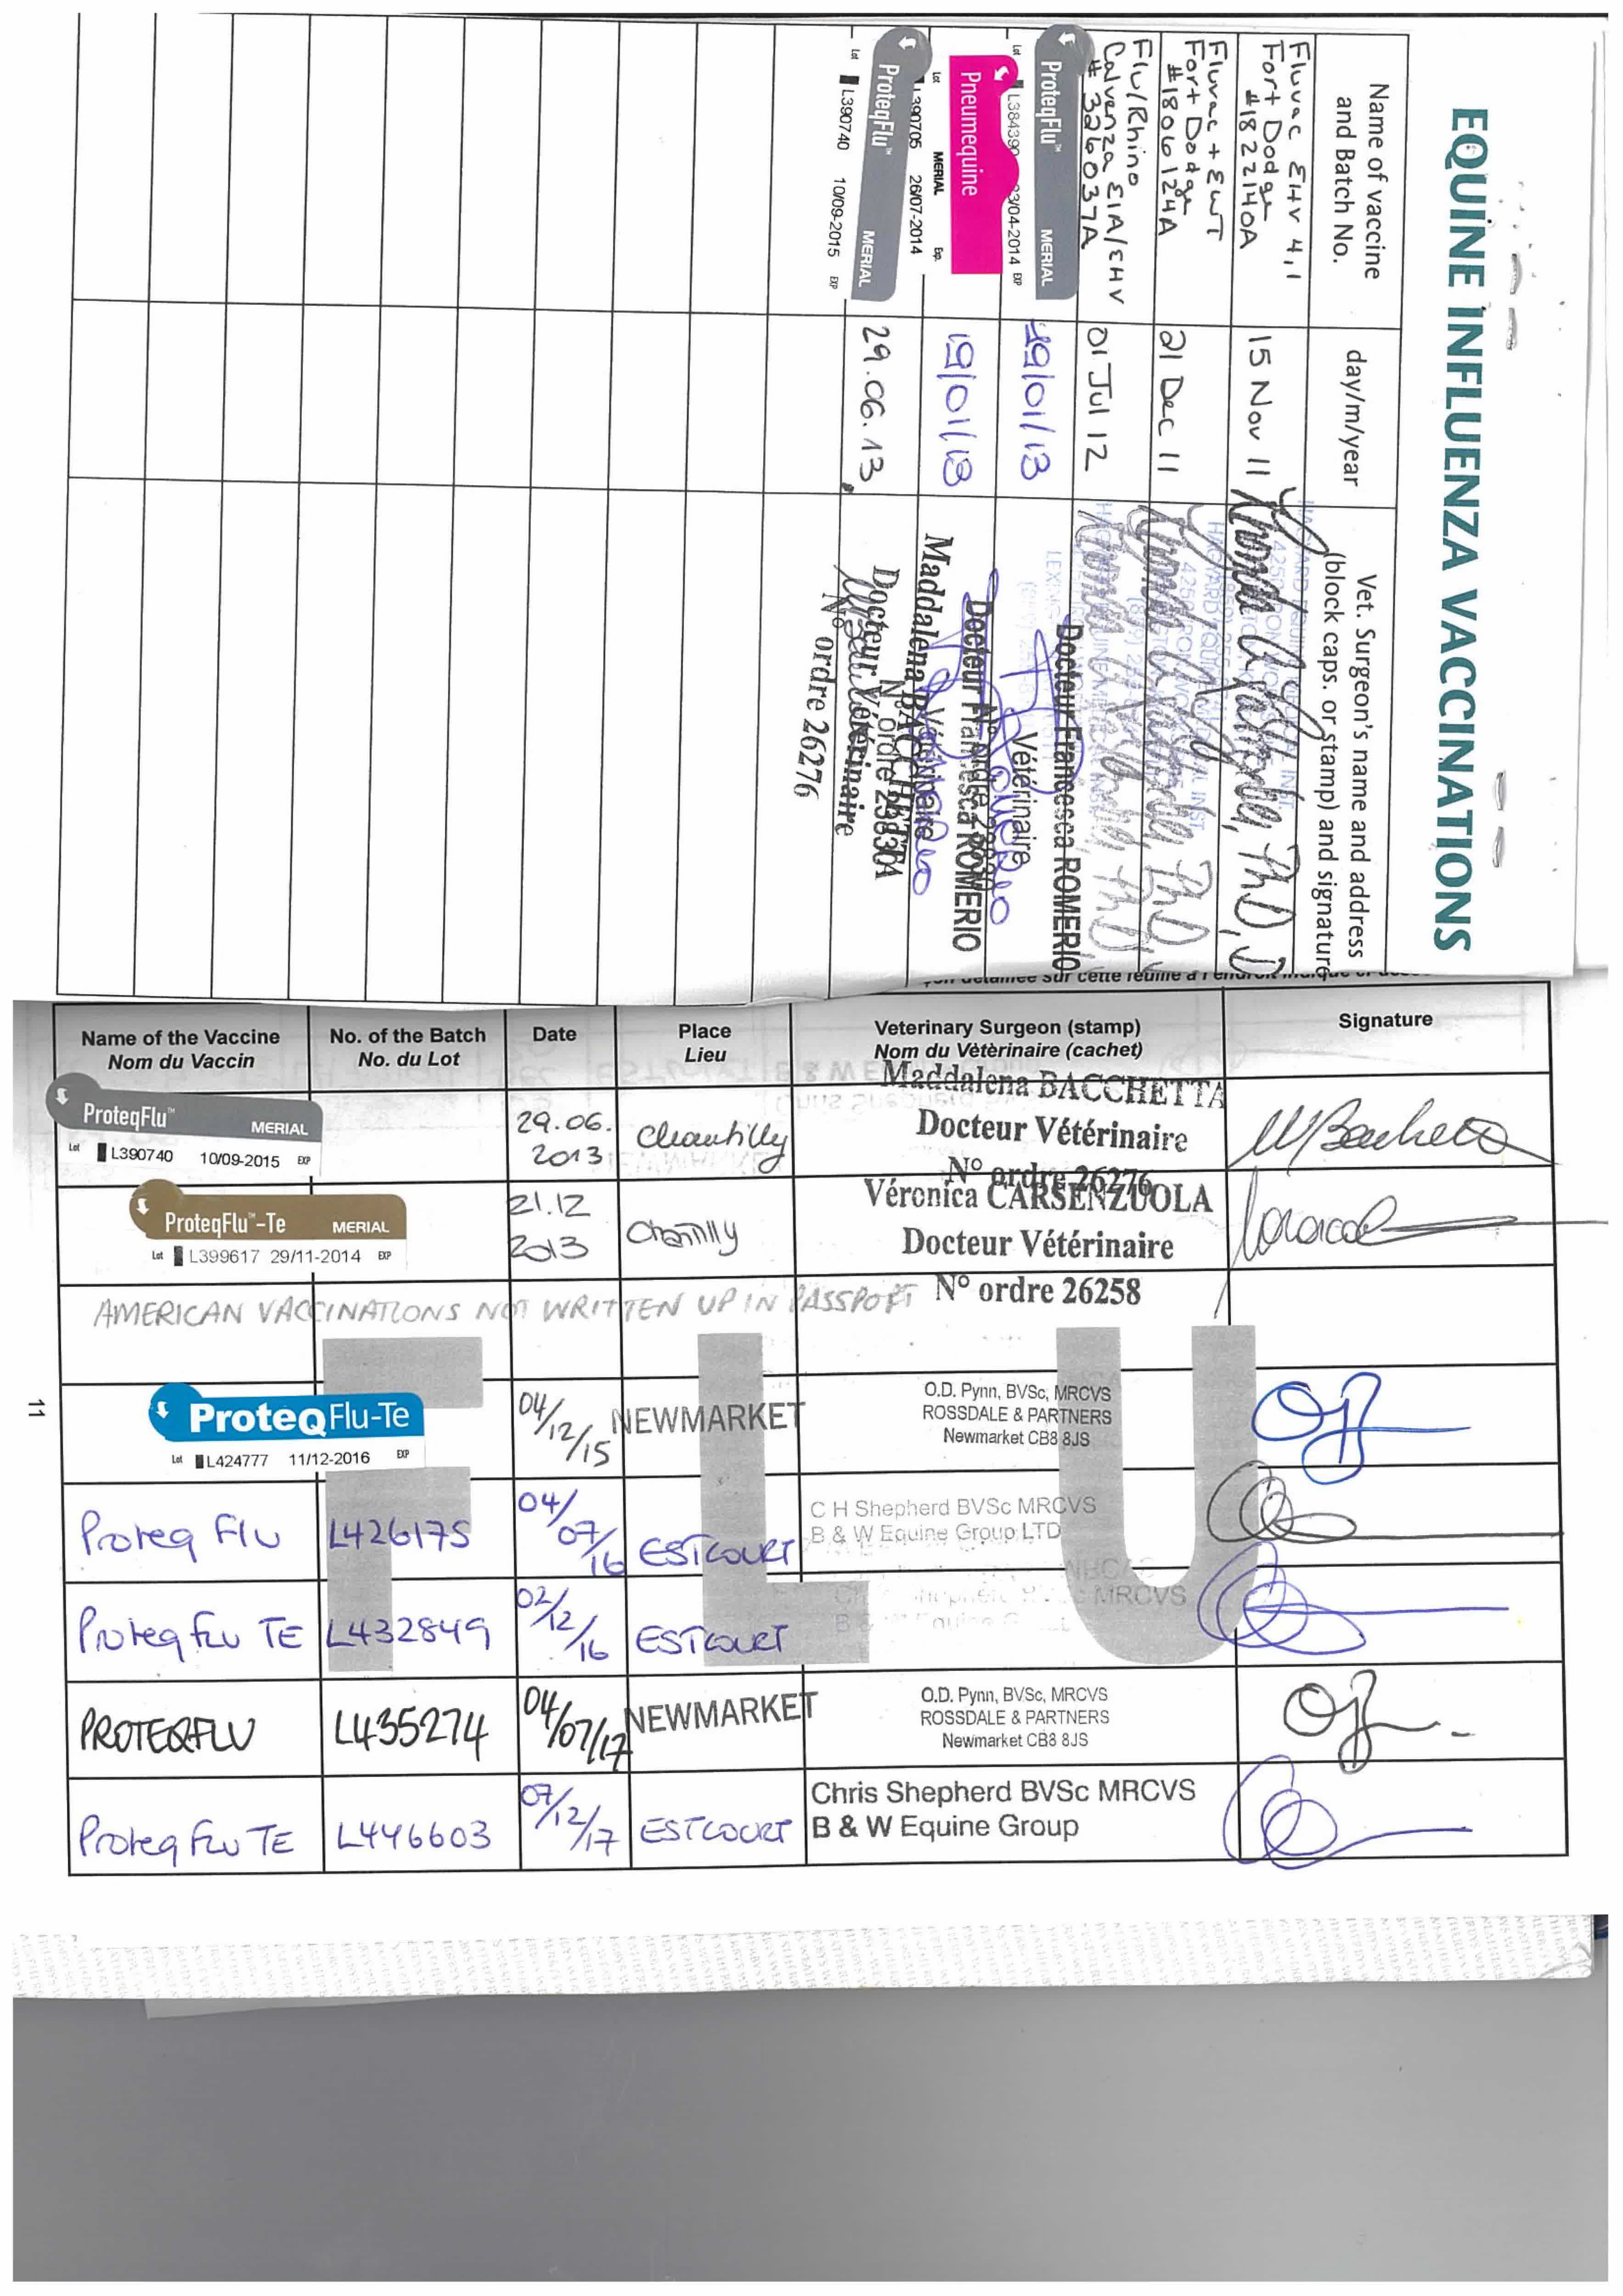 EQUINE INFLUENZA VACCINATIONS
Name of vaccine
and Batch No.
day/m/year
Vet. Surgeon's name and address
(block caps. or stamp) and signature
Fluvac EHV 4,1
Fort Dodge
#1822140A
15 Nov 11
Fluvac + EWT
Fort Dodge
#1806124A
21 Dec 11
Flu/Rhino
Calvenza EIA/EHV
# 3260037A
01 Jul 12
ProteqFlu™ MERIAL
Lot L384390 23/04-2014 EXP
19/01/13
Docteur Francesca ROMERIO
Vétérinaire
Pneumequine
Lot MERIAL Exp.
L390705 26/07-2014
19/01/13
Docteur Francesca ROMERIO
ProteqFlu™ MERIAL
Lot L390740 10/09-2015 EXP
29.06.13
Maddalena BACCHETTA
Docteur Vétérinaire
N° ordre 26276
sur cette feuille à l'endroit
Name of the Vaccine
Nom du Vaccin
No. of the Batch
No. du Lot
Date
Place
Lieu
Veterinary Surgeon (stamp)
Nom du Vètèrinaire (cachet)
Signature
ProteqFlu™ MERIAL
Lot L390740 10/09-2015 EXP
29.06.
2013
Chantilly
Maddalena BACCHETTA
Docteur Vétérinaire
N° ordre 26276
ProteqFlu™-Te MERIAL
Lot L399617 29/11-2014 EXP
21.12
2013
Chantilly
Véronica CARSENZUOLA
Docteur Vétérinaire
N° ordre 26258
AMERICAN VACCINATIONS NOT WRITTEN UP IN PASSPORT
FLU
11
ProteqFlu-Te
Lot L424777 11/12-2016 EXP
04/12/15
NEWMARKET
O.D. Pynn, BVSc, MRCVS
ROSSDALE & PARTNERS
Newmarket CB8 8JS
Proteq Flu
L426175
04/07/16
ESTCOURT
C H Shepherd BVSc MRCVS
B & W Equine Group LTD
Proteq Flu TE
L432849
02/12/16
ESTCOURT
MRCVS
PROTEQFLU
L435274
04/07/17
NEWMARKET
O.D. Pynn, BVSc, MRCVS
ROSSDALE & PARTNERS
Newmarket CB8 8JS
Proteq Flu TE
L446603
07/12/17
ESTCOURT
Chris Shepherd BVSc MRCVS
B & W Equine Group